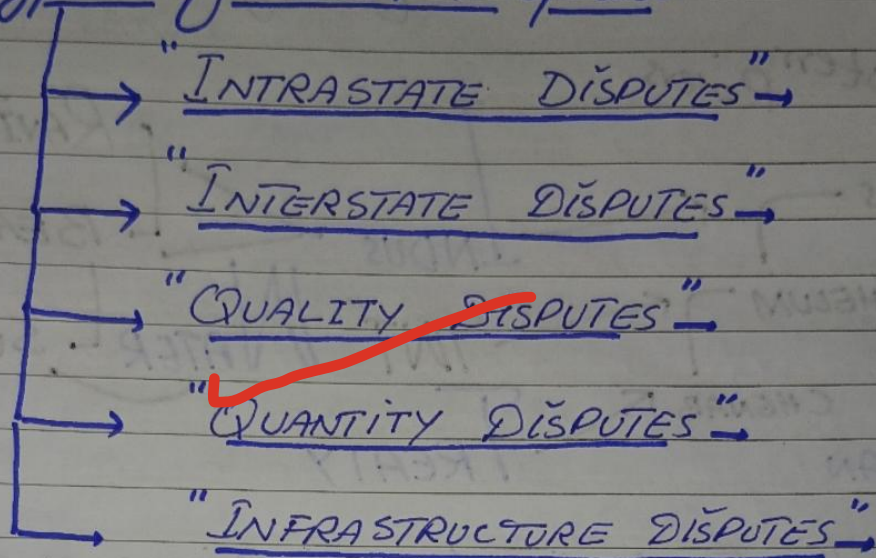 "INTRASTATE DISPUTES"
"INTERSTATE DISPUTES"
"QUALITY DISPUTES"
"QUANTITY DISPUTES"
"INFRASTRUCTURE DISPUTES"